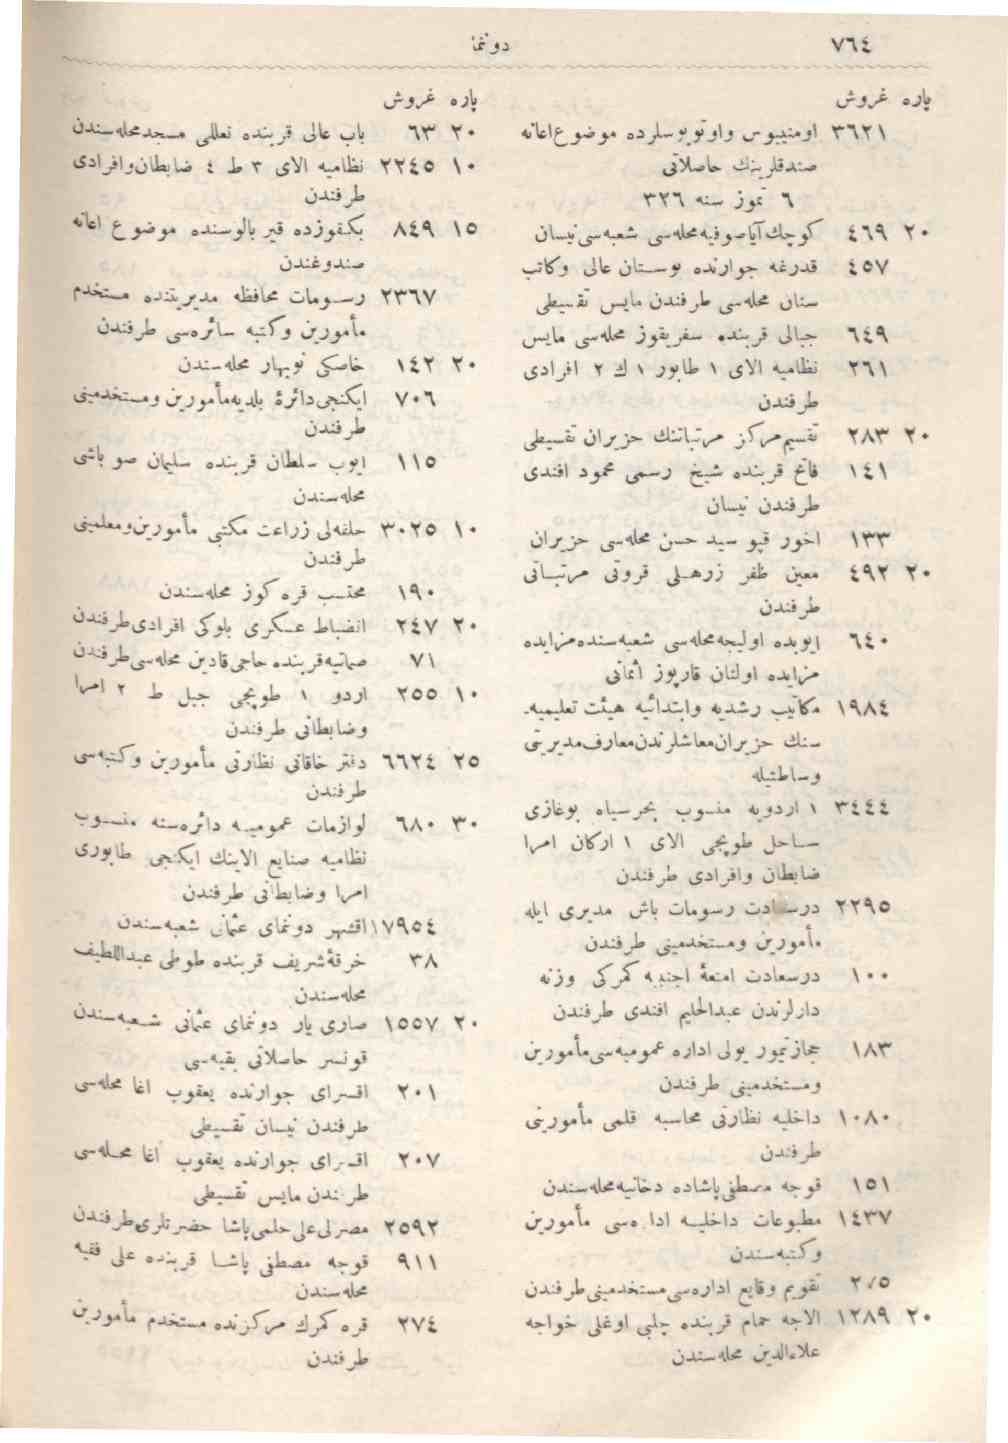 ٧٦٤
دوننما
پاره غروش
٣٦٢١ اومنیبوس واوتوبوسلرده موضوع اعانه
صندقلرینك حاصلاتی
٦ تموز سنه ٣٢٦
٢٠ ٤٦٩ کوچك آیاصوفیه محله‌سی شعبه‌سی نیسان
٤٥٧ قدرغه جوارنده بوستان عالی وکاتب
سنان محله‌سی طرفندن مایس تقسیطی
٦٤٩ جبالی قربنده سفریقوز محله‌سی مایس
٢٦١ نظامیه الای ١ طابور ١ ك ٢ افرادی
طرفندن
٢٠ ٢٨٣ تقسیم مرکز مرتباتنك حزیران تقسیطی
١٤١ فاتح قربنده شیخ رسمی محمود افندی
طرفندن نیسان
١٣٣ اخور قپو سید حسن محله‌سی حزیران
٢٠ ٤٩٢ معین ظفر زرهلی قروتی مرتباتی
طرفندن
٦٤٠ ایوبده اولیجه محله‌سی شعبه‌سنده مزایده
مزایده اولنان قارپوز اثمانی
١٩٨٤ مکاتیب رشدیه وابتدائیه هیئت تعلیمیه‌
سنك حزیران معاشلرندن معارف مدیریتی
وساطتیله
٣٤٤٤ ١ اردویه منسوب بحرسیاه بوغازی
ساحل طوپجی الای ١ ارکان امرا
ضابطان وافرادی طرفندن
٢٢٩٥ درسعادت رسومات باش مدیری ایله
مأمورین ومستخدمینی طرفندن
١٠٠ درسعادت امتعهٔ اجنبیه کمرکی وزنه
دارلرندن عبدالحلیم افندی طرفندن
١٨٣ حجاز تیمور یولی اداره عمومیه‌سی مأمورین
ومستخدمینی طرفندن
١٠٨٠ داخلیه نظارتی محاسبه قلمی مأموریتی
طرفندن
١٥١ قوجه مصطفی پاشاده دخانیه محله‌سندن
١٤٣٧ مطبوعات داخلیه اداره‌سی مأمورین
وکتبه‌سندن
تقویم وقایع اداره‌سی مستخدمینی طرفندن
٢٠ ١٢٨٩ الاجه حمام قربنده چلبی اوغلی خواجه
علاءالدین محله‌سندن
پاره غروش
٢٠ ٦٣ باب عالی قربنده نعللی مسجد محله‌سندن
١٠ ٢٢٤٥ نظامیه الای ٣ ط ٤ ضابطان وافرادی
طرفندن
١٥ ٨٤٩ بکفوزده قیر بالوسنده موضوع اعانه
صندوغندن
٢٣٦٧ رسومات محافظه مدیریتنده مستخدم
مأمورین وکتبه سائره‌سی طرفندن
٢٠ ١٤٢ خاصکی نوبهار محله‌سندن
٧٠٦ ایکنجی دائرهٔ بلدیه مأمورین ومستخدمینی
طرفندن
١١٥ ایوب سلطان قربنده سلیمان صو باشی
محله‌سندن
١٠ ٣٠٢٥ حلقه‌لی زراعت مکتبی مأمورین ومعلمینی
طرفندن
١٩٠ محتسب قره کوز محله‌سندن
٢٠ ٢٤٧ انضباط عسکری بلوکی افرادی طرفندن
٧١ صماتیه قربنده حاجی قادین محله‌سی طرفندن
١٠ ٢٥٥ اردو ١ طوپجی جبل ط ٢ امرا
وضابطانی طرفندن
٢٥ ٦٦٢٤ دفتر خاقانی نظارتی مأمورین وکتبه‌سی
طرفندن
٣٠ ٦٨٠ لوازمات عمومیه دائره‌سنه منسوب
نظامیه صنایع الاینك ایکنجی طابوری
امرا وضابطانی طرفندن
١٧٩٥٤ اقشهر دونمای عثمانی شعبه‌سندن
٣٨ خرقهٔ شریف قربنده طوطی عبداللطیف
محله‌سندن
٢٠ ١٥٥٧ صاری یار دونمای عثمانی شعبه‌سندن
قونسر حاصلاتی بقیه‌سی
٢٠١ اقسرای جوارنده یعقوب اغا محله‌سی
طرفندن نیسان تقسیطی
٢٠٧ اقسرای جوارنده یعقوب اغا محله‌سی
طرفندن مایس تقسیطی
٢٥٩٢ مصرلی علی حلمی پاشا حضرتلری طرفندن
٩١١ قوجه مصطفی پاشا قربنده علی فقیه
محله‌سندن
٢٧٤ قره کمرك مرکزنده مستخدم مأمورین
طرفندن